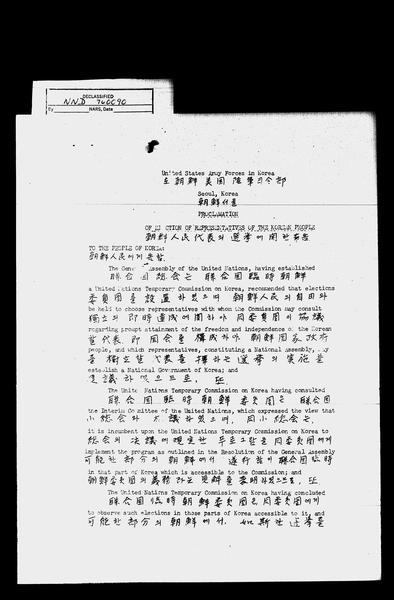 DECLASSIFIED
NND 740090
By NARS, Date
United States Army Forces in Korea
在朝鮮美國陸軍司令部
Seoul, Korea
朝鮮서울
PROCLAMATION
OF REPRESENTATIVES OF THE KOREAN PEOPLE
朝鮮人民代表의選擧에関한布告
TO THE PEOPLE OF KOREA:
朝鮮人民에게告함
The General Assembly of the United Nations, having established
聯合国総会는聯合国臨時朝鮮
a United Nations Temporary Commission on Korea, recommended that elections
委員団을設置하였으며 朝鮮人民의自由와
be held to choose representatives with whom the Commission may consult
獨立의即時達成에関하야同委員団이協議
regarding prompt attainment of the freedom and independence of the Korean
代表即国会를構成하야朝鮮国家政府
people, and which representatives, constituting a National Assembly, may
를樹立할代表를擇하는選擧의実施를
establish a National Government of Korea; and
決議하였으므로, 또
The United Nations Temporary Commission on Korea having consulted
聯合国臨時朝鮮委員団은聯合国
the Interim Committee of the United Nations, which expressed the view that
小総会와 議하였으며, 同小総会는,
it is incumbent upon the United Nations Temporary Commission on Korea to
総会의決議에規定한 同委員団에게
implement the program as outlined in the Resolution of the General Assembly
可能한部分의朝鮮에서 遂行함이聯合国臨時
in that part of Korea which is accessible to the Commission; and
朝鮮委員団의義務라는見解를表明하였으므로, 또
The United Nations Temporary Commission on Korea having concluded
聯合国臨時朝鮮委員団은同委員団에게
to observe such elections in those parts of Korea accessible to it, and
可能한部分의朝鮮에서, 如斯한選擧를